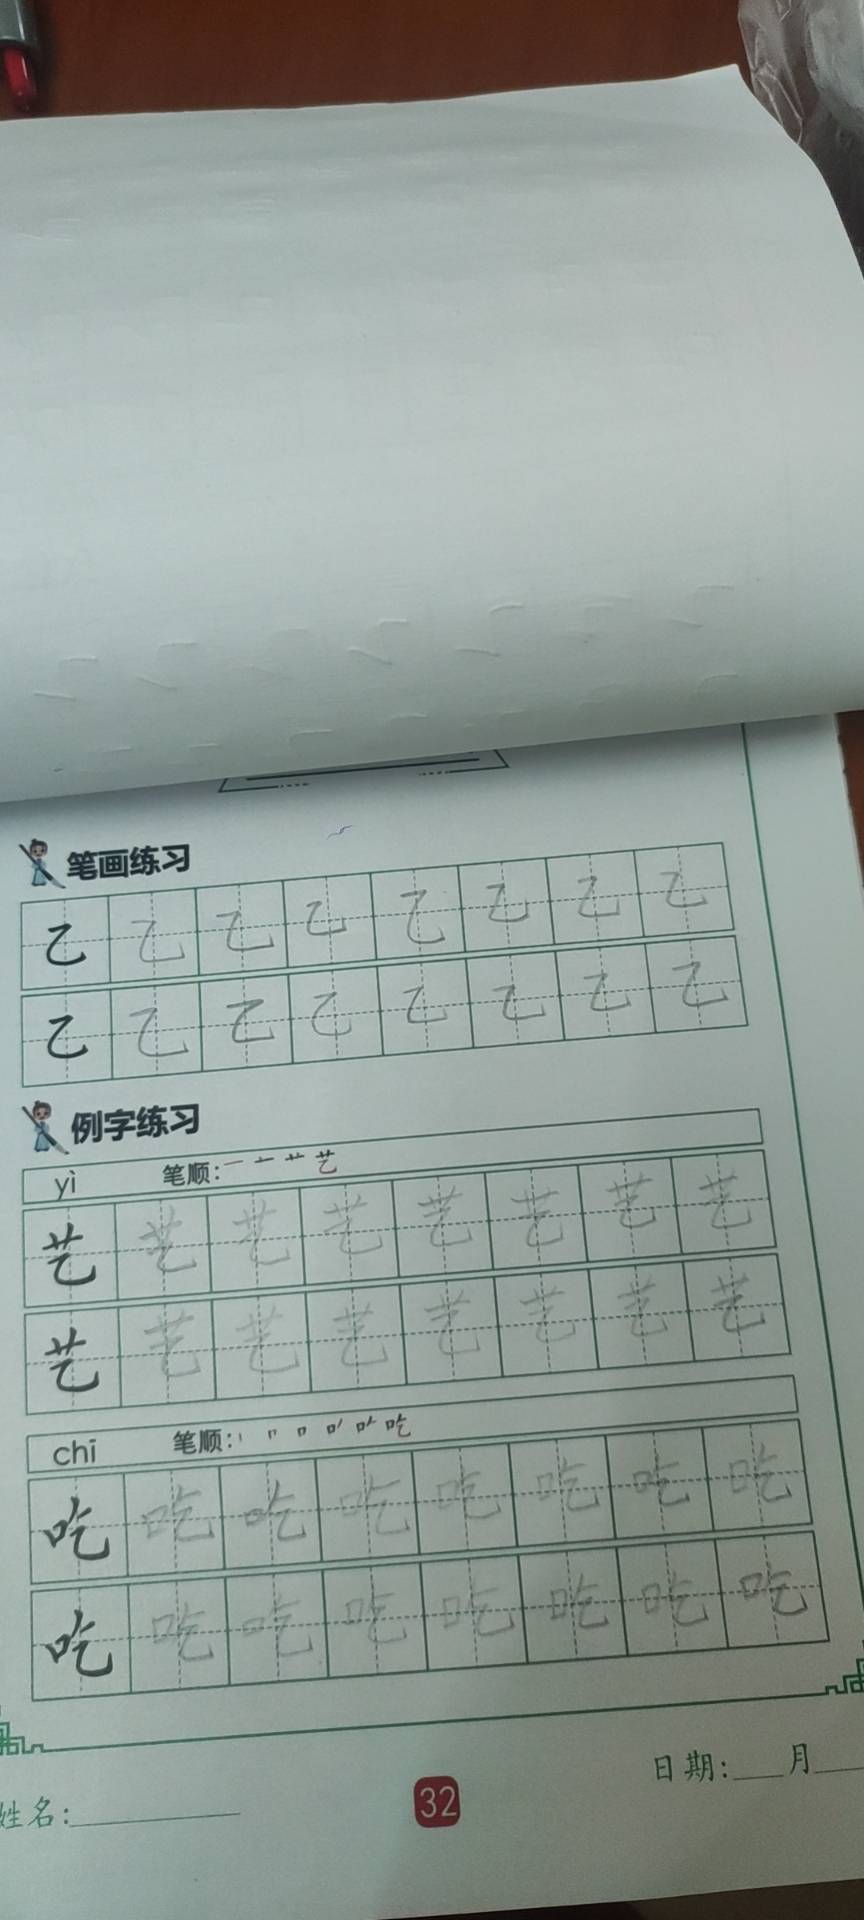 笔画练习
乙 乙 乙 乙 乙 乙 乙 乙
乙 乙 乙 乙 乙 乙 乙 乙
例字练习
yì 笔顺: 一 艹 艺
艺 艺 艺 艺 艺 艺 艺 艺
艺 艺 艺 艺 艺 艺 艺 艺
chī 笔顺: 丨 口 吃
吃 吃 吃 吃 吃 吃 吃 吃
吃 吃 吃 吃 吃 吃 吃 吃
日期:____月____
姓名:__________
32